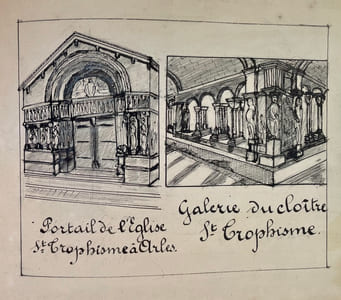 Portail de l'Eglise
St Trophisme à Arles.
Galerie du cloître
St Trophisme.